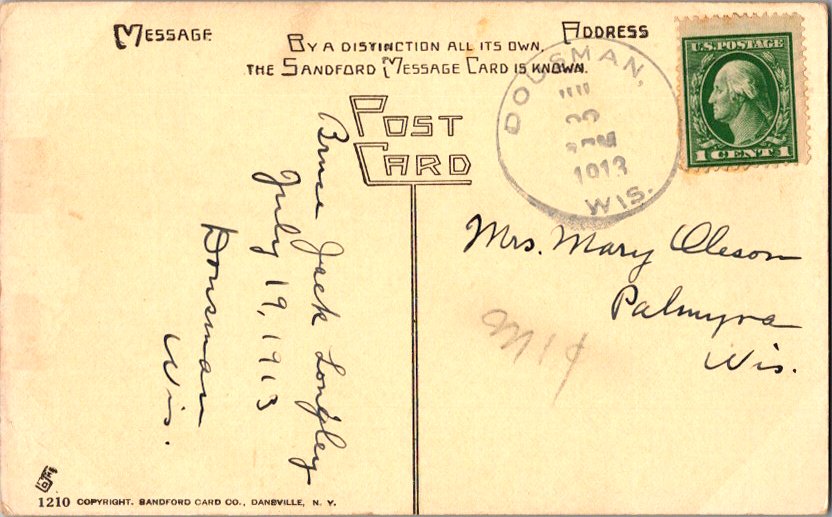 MESSAGE
ADDRESS
BY A DISTINCTION ALL ITS OWN,
THE SANDFORD MESSAGE CARD IS KNOWN.
POST
CARD
DOUSMAN,
1913
WIS.
U.S. POSTAGE
1 CENT 1
Bruce Jack Longley
July 19, 1913
Dousman
Wis.
Mrs. Mary Oleson
Palmyra
Wis.
1210 COPYRIGHT. SANDFORD CARD CO., DANSVILLE, N. Y.